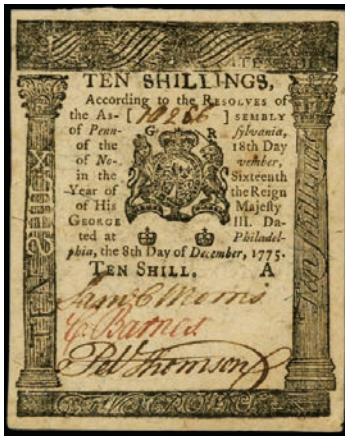 TEN SHILLINGS,
According to the RESOLVES of
the As- [ 10266 ] SEMBLY
of Penn- G R sylvania,
of the 18th Day
of No- vember,
in the Sixteenth
Year of the Reign
of His Majesty
GEORGE III. Da-
ted at Philadel-
phia, the 8th Day of December, 1775.
TEN SHILL. A
Sam. C Morris
C. Barnes
Pet Thomson
Ten shillings